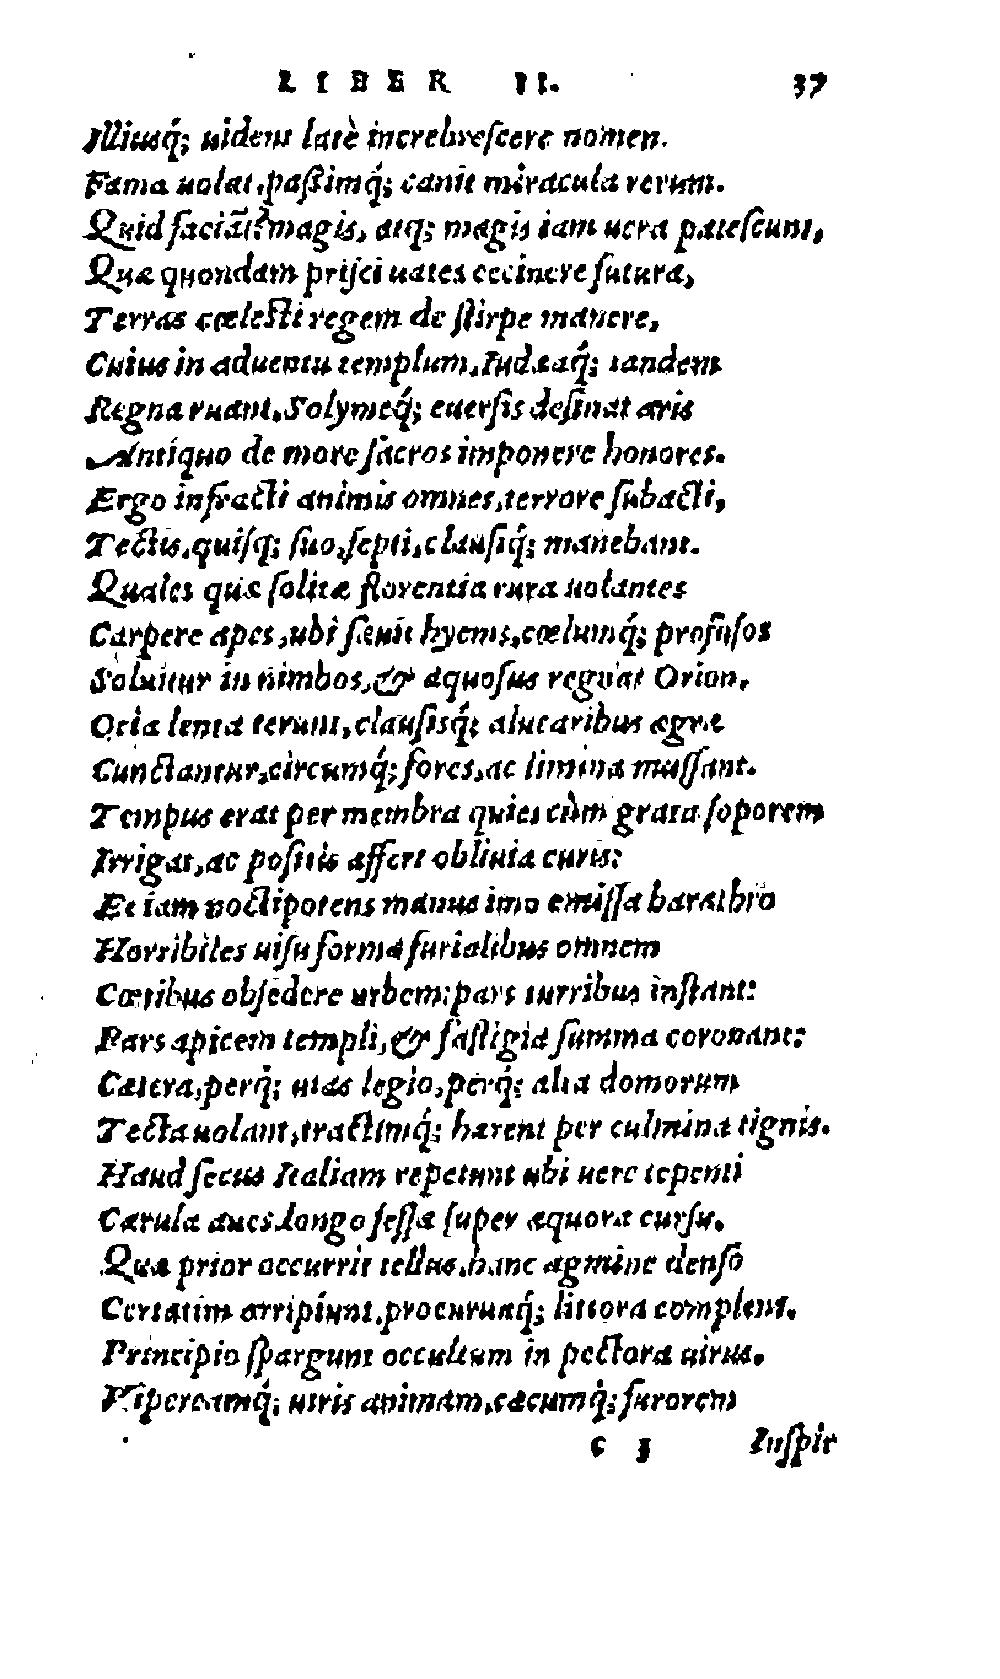 LIBER II. 37
Illiusq́; uident latè increbrescere nomen.
Fama uolat, paßimq́; canit miracula rerum.
Quid faciāt? magis, atq; magis iam uera patescunt,
Quæ quondam prisci uates cecinere futura,
Terras cœlesti regem de stirpe manere,
Cuius in aduentu templum, Iudæaq́; tandem
Regna ruant, Solymeq́; euersis desinat aris
Antiquo de more sacros imponere honores.
Ergo infracti animis omnes, terrore subacti,
Tectis, quisq; suo, septi, clausiq́; manebant.
Quales quæ solitæ florentia rura uolantes
Carpere apes, ubi sæuit hyems, cœlumq́; profusos
Soluitur in nimbos, & aquosus regnat Orion,
Ocia lenta terunt, clausisq́; aluearibus ægræ
Cunctantur, circumq́; fores, ac limina mussant.
Tempus erat per membra quies cùm grata soporem
Irrigat, ac positis affert obliuia curis:
Et iam noctipotens manus imo emissa barathro
Horribiles uisu forma furialibus omnem
Cœtibus obsedere urbem: pars turribus instant:
Pars apicem templi, & fastigia summa coronant:
Cætera, perq́; uias legio, perq́; alta domorum
Tecta uolant, tractimq́; hærent per culmina tignis.
Haud secus Italiam repetunt ubi uere tepenti
Cærula aues longo fessæ super æquora cursu.
Quæ prior occurrit tellus, hanc agmine denso
Certatim arripiunt, procuruaq́; littora complent.
Principio spargunt occultum in pectora uirus,
Vipereamq́; uiris animam, cæcumq́; furorem
c 3 Inspir